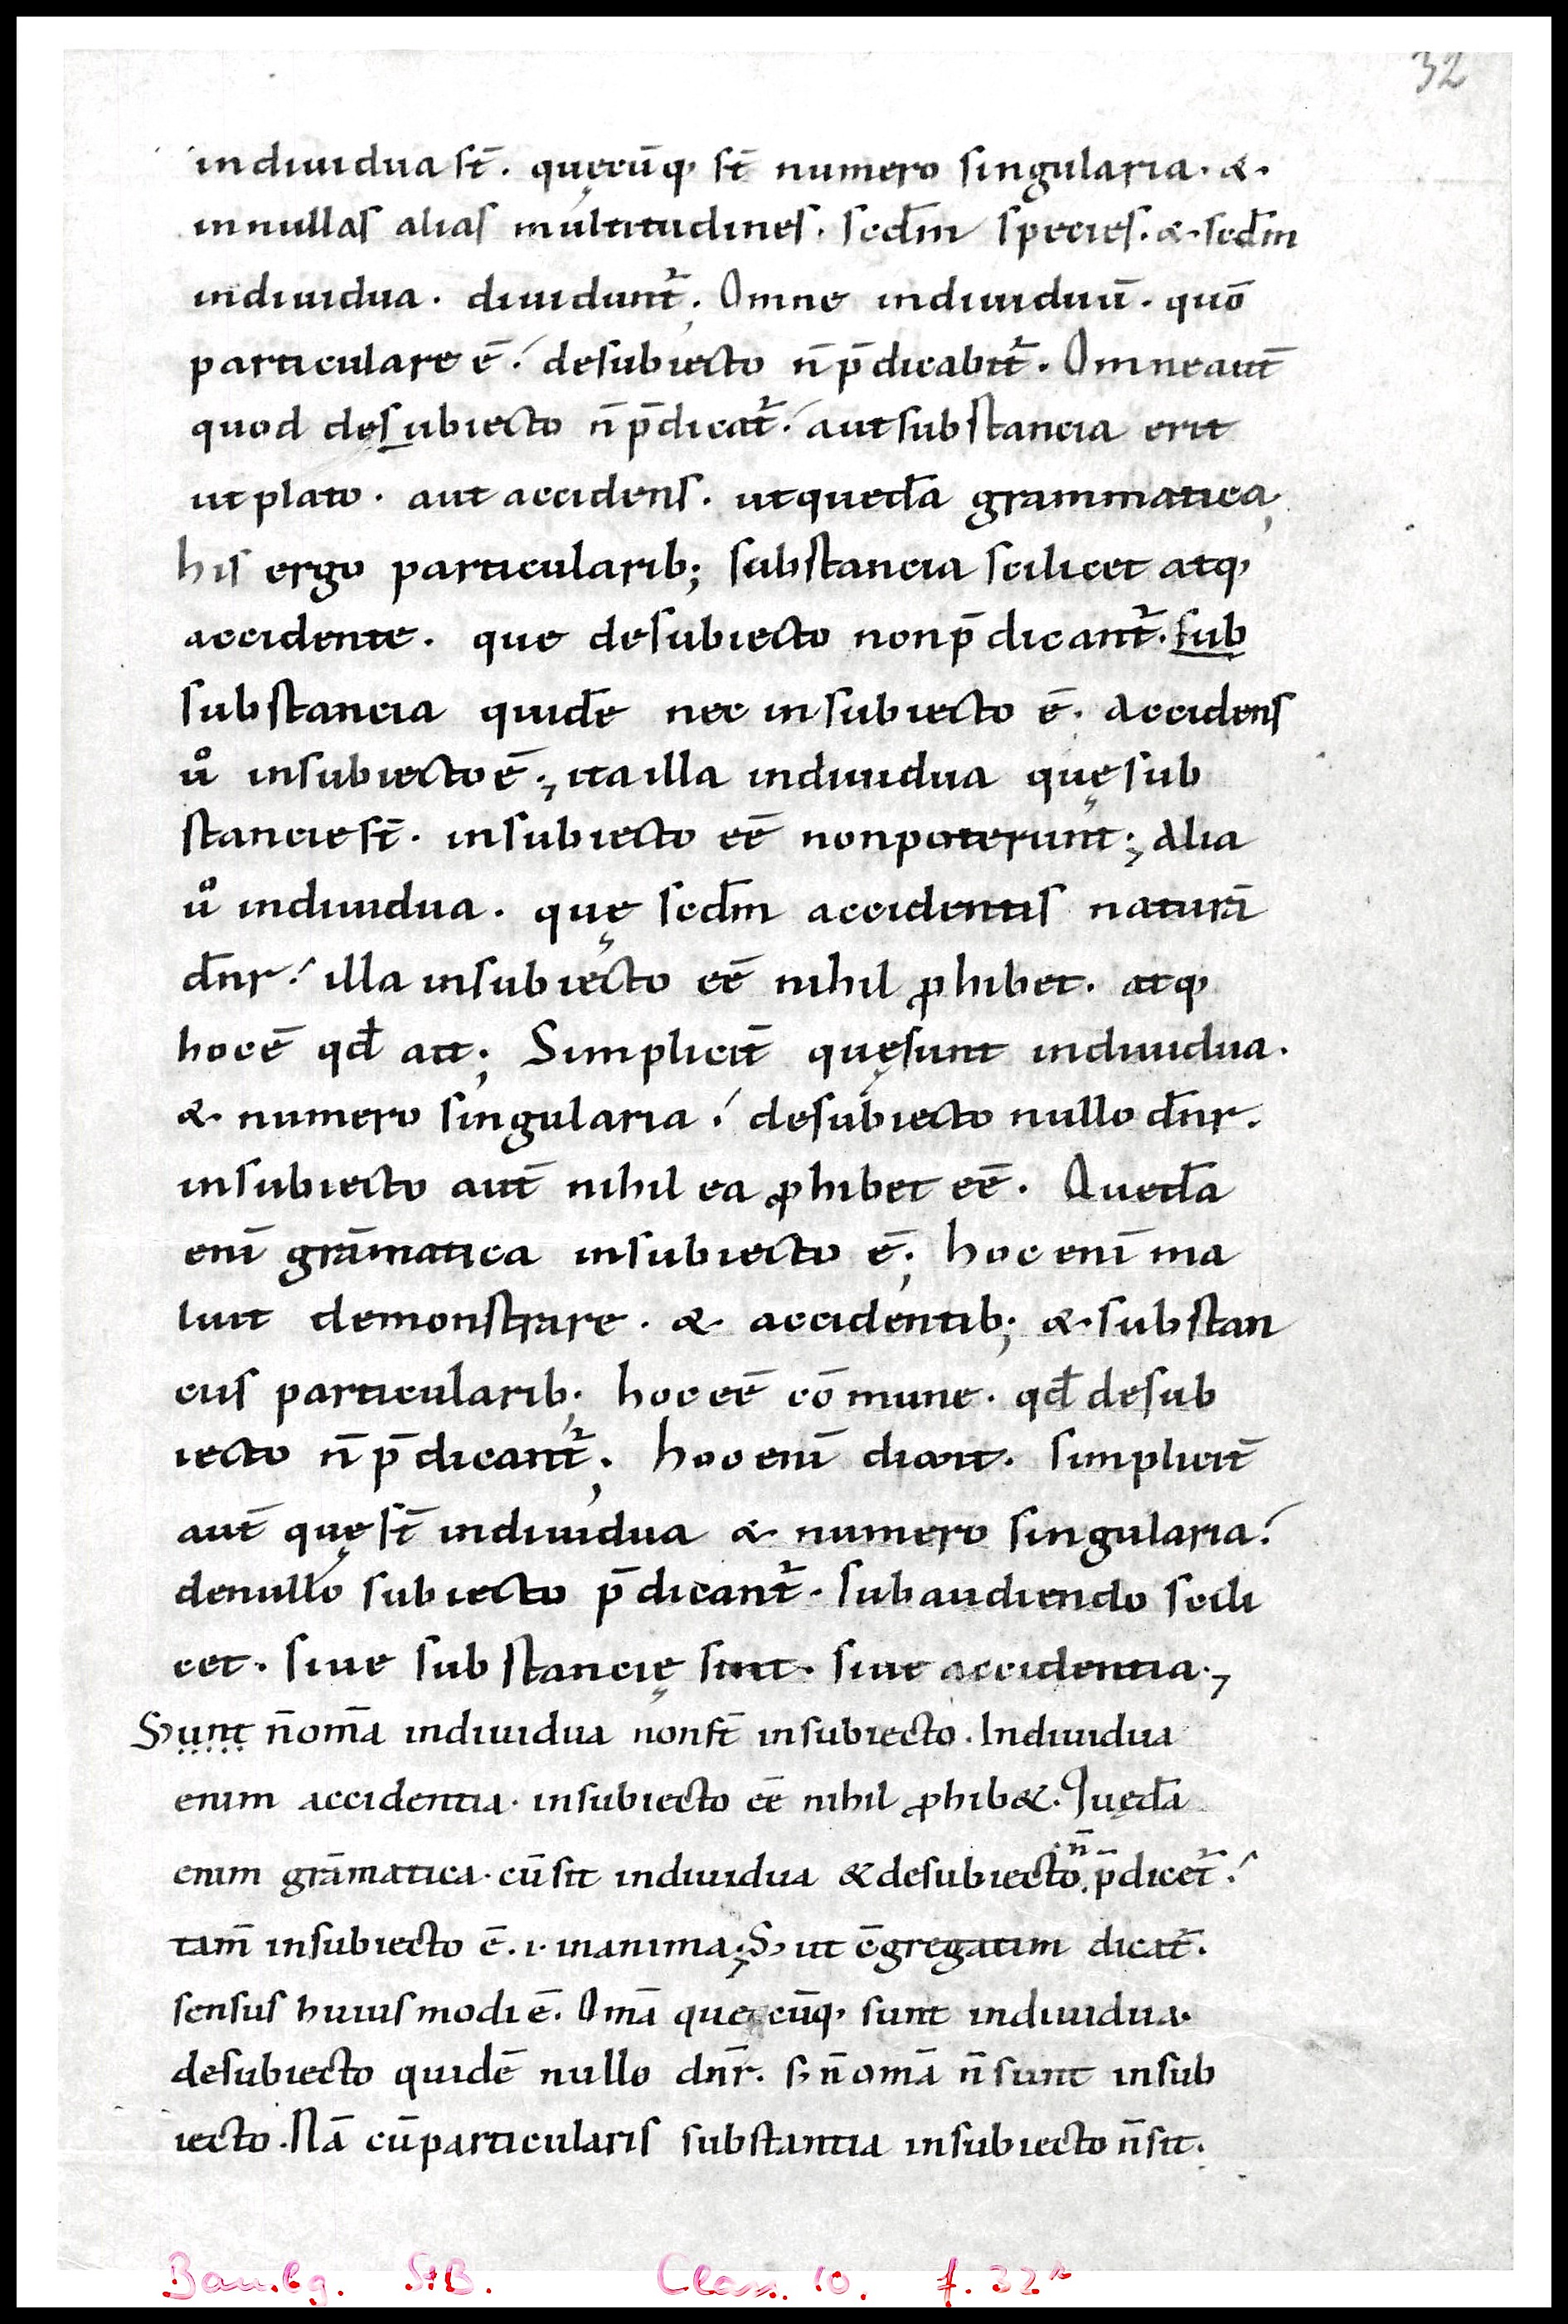 32
indiuidua st̄. quęcūq; st̄ numero singularia. &.
innullas alias multitudines. scd̄m species. & scd̄m
indiuidua. diuidunt̄. Omne indiuiduū. quō
particulare ē. desubiecto n̄ p̄dicabit̄. Omne aut̄
quod desubiecto n̄ p̄dicat̄. aut substancia erit
ut plato. aut accidens. ut qued̄a grammatica,
his ergo particularib; substancia scilicet atq;
accidente. que desubiecto non p̄dicant̄. sub
substancia quidē nec insubiecto ē. Accidens
uͦ insubiecto ē., ita illa indiuidua quę sub
stancie st̄. insubiecto eē non poterunt; Alia
uͦ indiuidua. quę scd̄m accidentis naturā
dn̄r. illa insubiecto eē nihil ꝓhibet. atq;
hoc ē qd̄ ait; Simplicit̄ quę sunt indiuidua.
& numero singularia. desubiecto nullo dn̄r.
insubiecto aut̄ nihil ea ꝓhibet eē. Qued̄a
enī grāmatica insubiecto ē; hoc enī ma
luit demonstrare. & accidentib; & substan
ciis particularib; hoc eē cōmune. qd̄ desub
iecto n̄ p̄dicant̄; hoc enī dicit. simplicit̄
aut̄ quę st̄ indiuidua & numero singularia.
denullo subiecto p̄dicant̄. subaudiendo scili
cet. siue substancię sint. siue accidentia.,
S; unt n̄ om̄a indiuidua non st̄ insubiecto. Indiuidua
enim accidentia. insubiecto eē nihil ꝓhib&. Quęd̄a
enim grāmatica. cū sit indiuidua & desubiecto n̄ p̄dicet̄.
tam̄ insubiecto ē. i. in anima; S; ut c̄gregatim dicat̄.
sensus huiusmodi ē. Omā quęcūq; sunt indiuidua.
desubiecto quidē nullo dn̄r. s; n̄ omā n̄ sunt insub
iecto. Nā cū particularis substantia insubiecto n̄ sit.
Bambg. StB. Class. 10. f. 32r